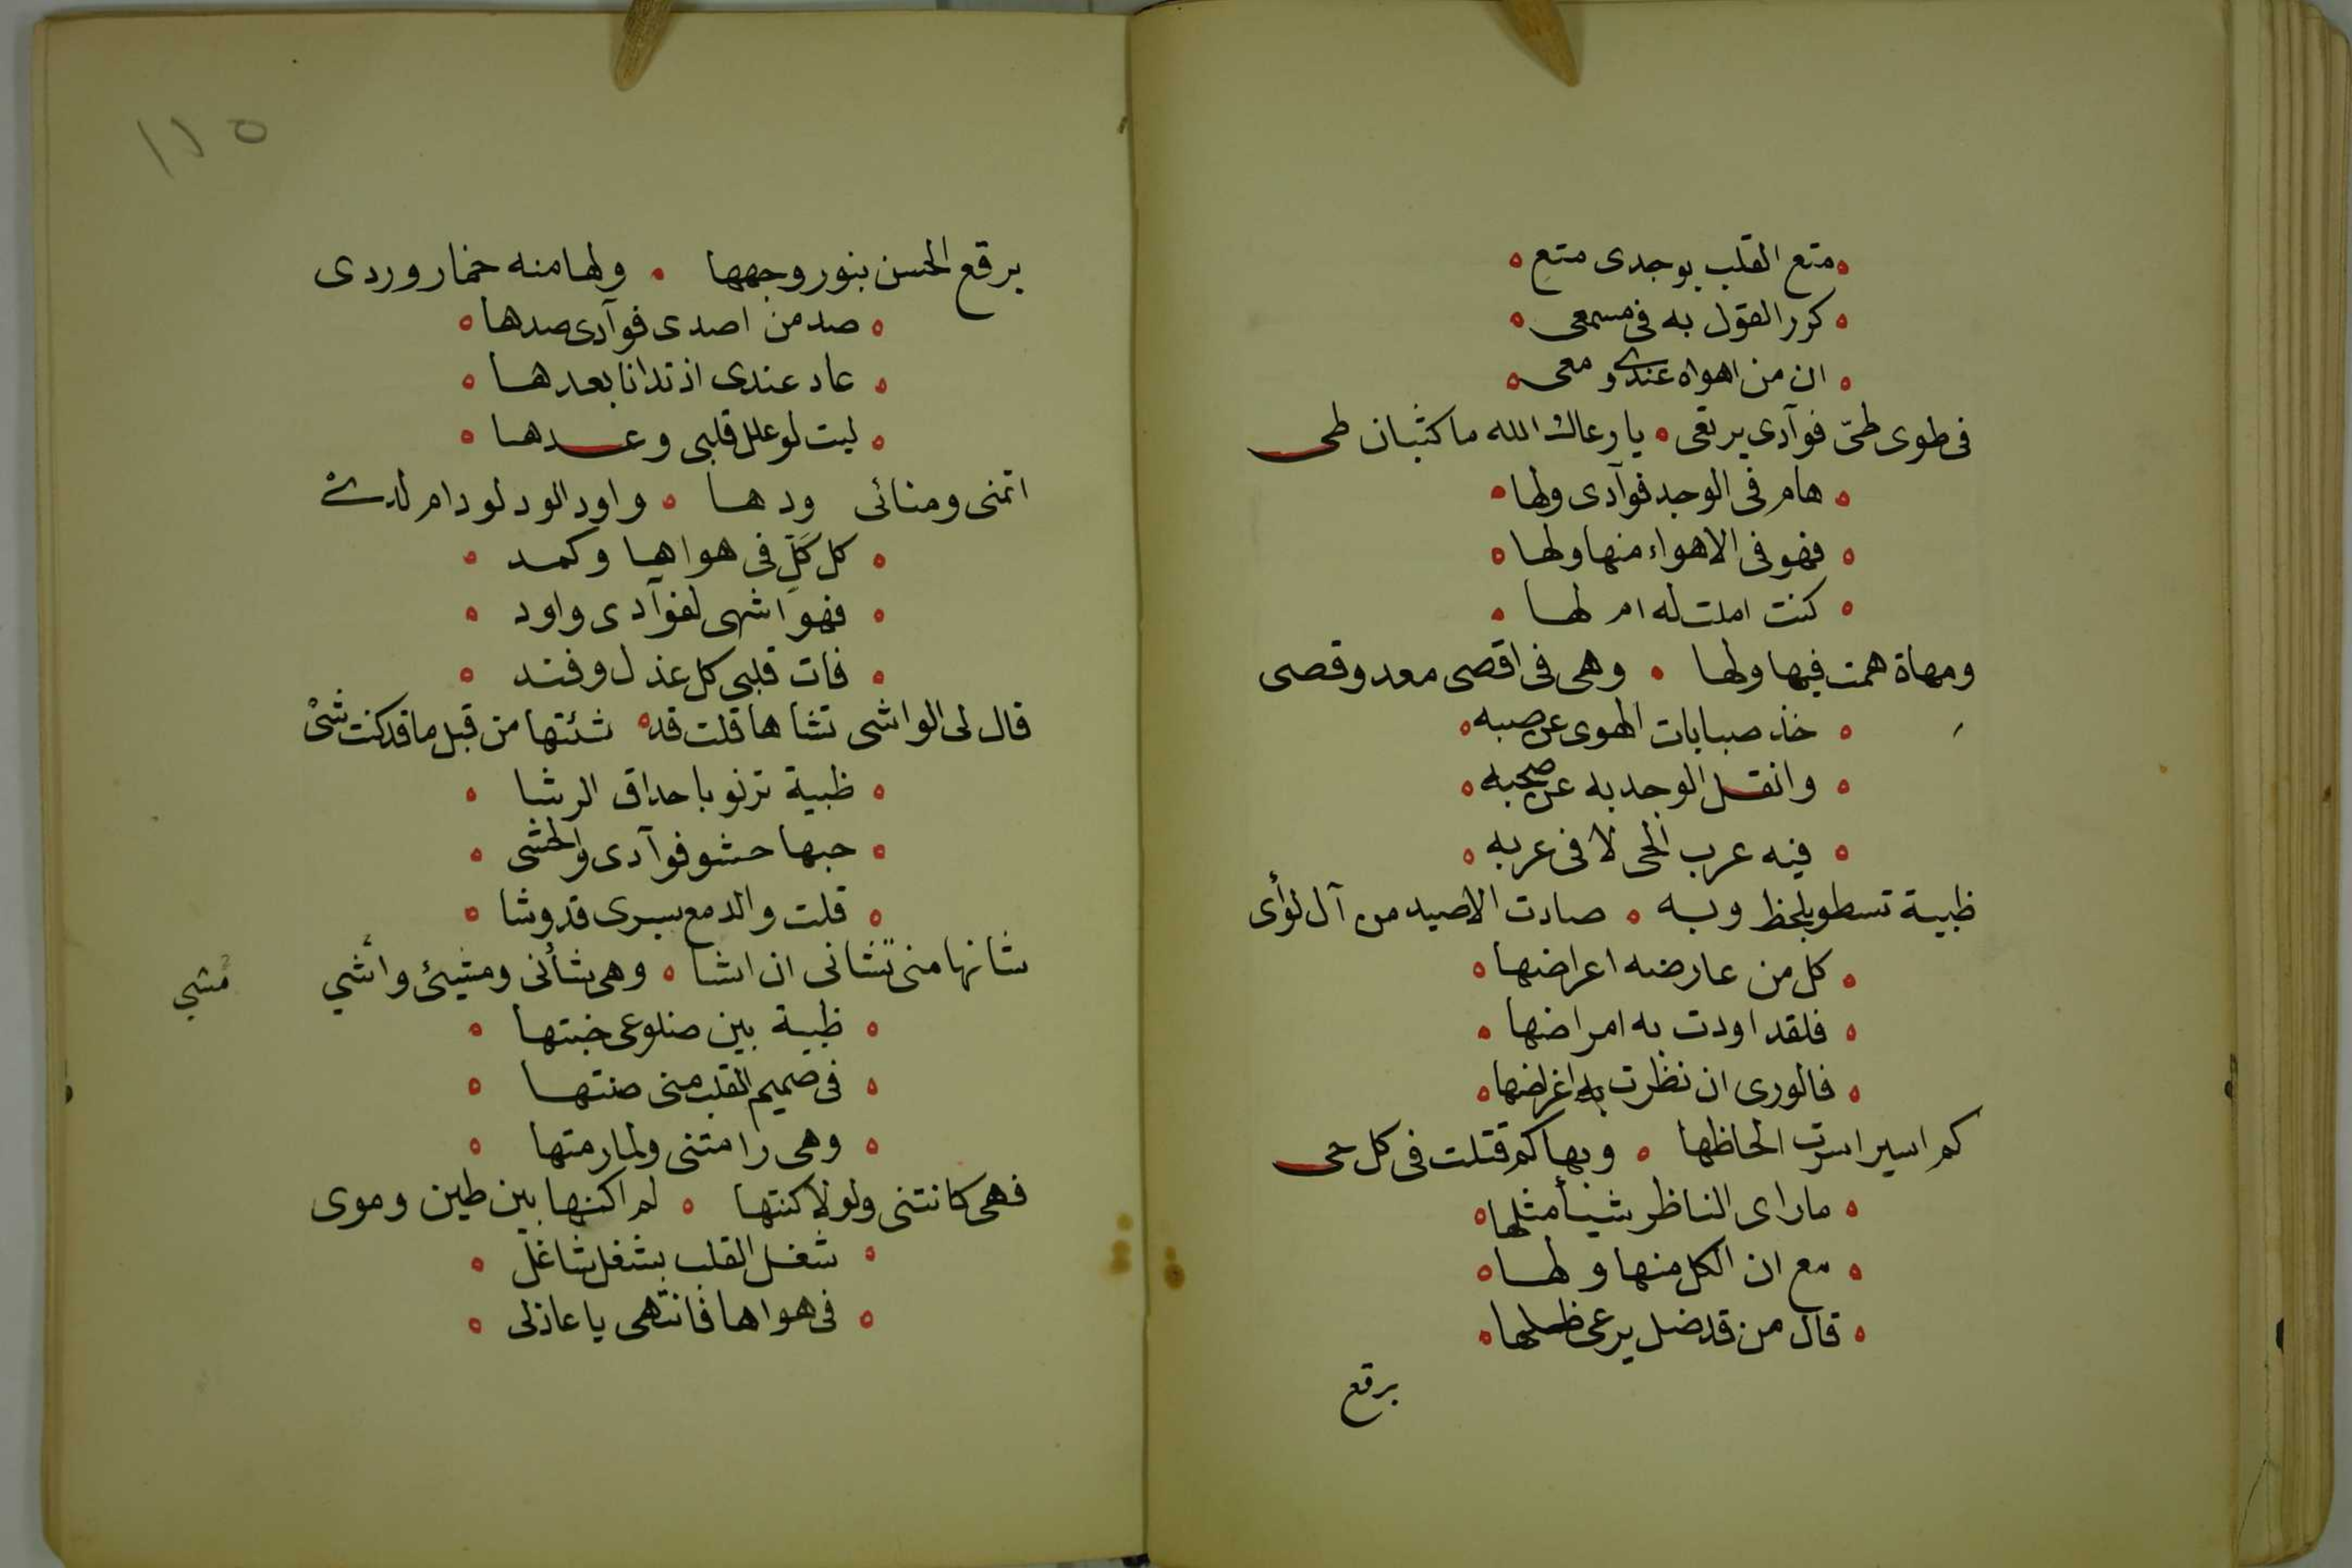 متع القلب بوجدى متع
كرر القول به فى مسمعى
ان من اهواه عندى ومعى
فى طوى طىّ فوآدى يرتقى يا رعاك الله ما كثبان طى
هام فى الوجد فوآدى ولها
فهو فى الاهواء منها ولها
كنت املت له ام لها
ومهاة همت فيها ولها وهى فى اقصى معد وقصى
خذ صبابات الهوى عن صبه
وانقل الوجد به عن صحبه
فيه عرب الحى لا فى عربه
ظبية تسطو بلحظ وبه صادت الاصيد من آل لؤأى
كل من عارضه اعراضها
فلقد اودت به امراضها
فالورى ان نظرت به اغراضها
كم اسير اسرت الحاظها وبها كم قتلت فى كل حى
ما راى الناظر شيأ مثلها
مع ان الكل منها ولها
قال من قد ضل يرعى ظلها
برقع
١١٥
برقع الحسن بنور وجهها ولها منه خمار وردى
صد من اصدى فوآدى صدها
عاد عندى اذ تدانا بعدها
ليت لو علل قلبى وعدها
اتمنى ومنائى ودها واود الود لو دام لدى
كل كَلّ فى هواها وكمد
فهو اشهى لفوآدى واود
فات قلبى كل عذل وفند
قال لى الواشى تشاها قلت قد شئتها من قبل ما قد كنت شئ
ظبية ترنو باحداق الرشا
حبها حشو فوآدى والحشى
قلت والدمع بسرى قد وشا
شانها منى تشانى ان اشا وهى شأنى ومشيئى وأشي
مُشي
ظبية بين ضلوعى خبتها
فى صميم القلب منى صنتها
وهى رامتنى ولما رمتها
فهى كانتنى ولولا كنتها لم اكنها بين طين وموى
شغل القلب بشغل شاغل
فى هواها فانتهى يا عاذلى